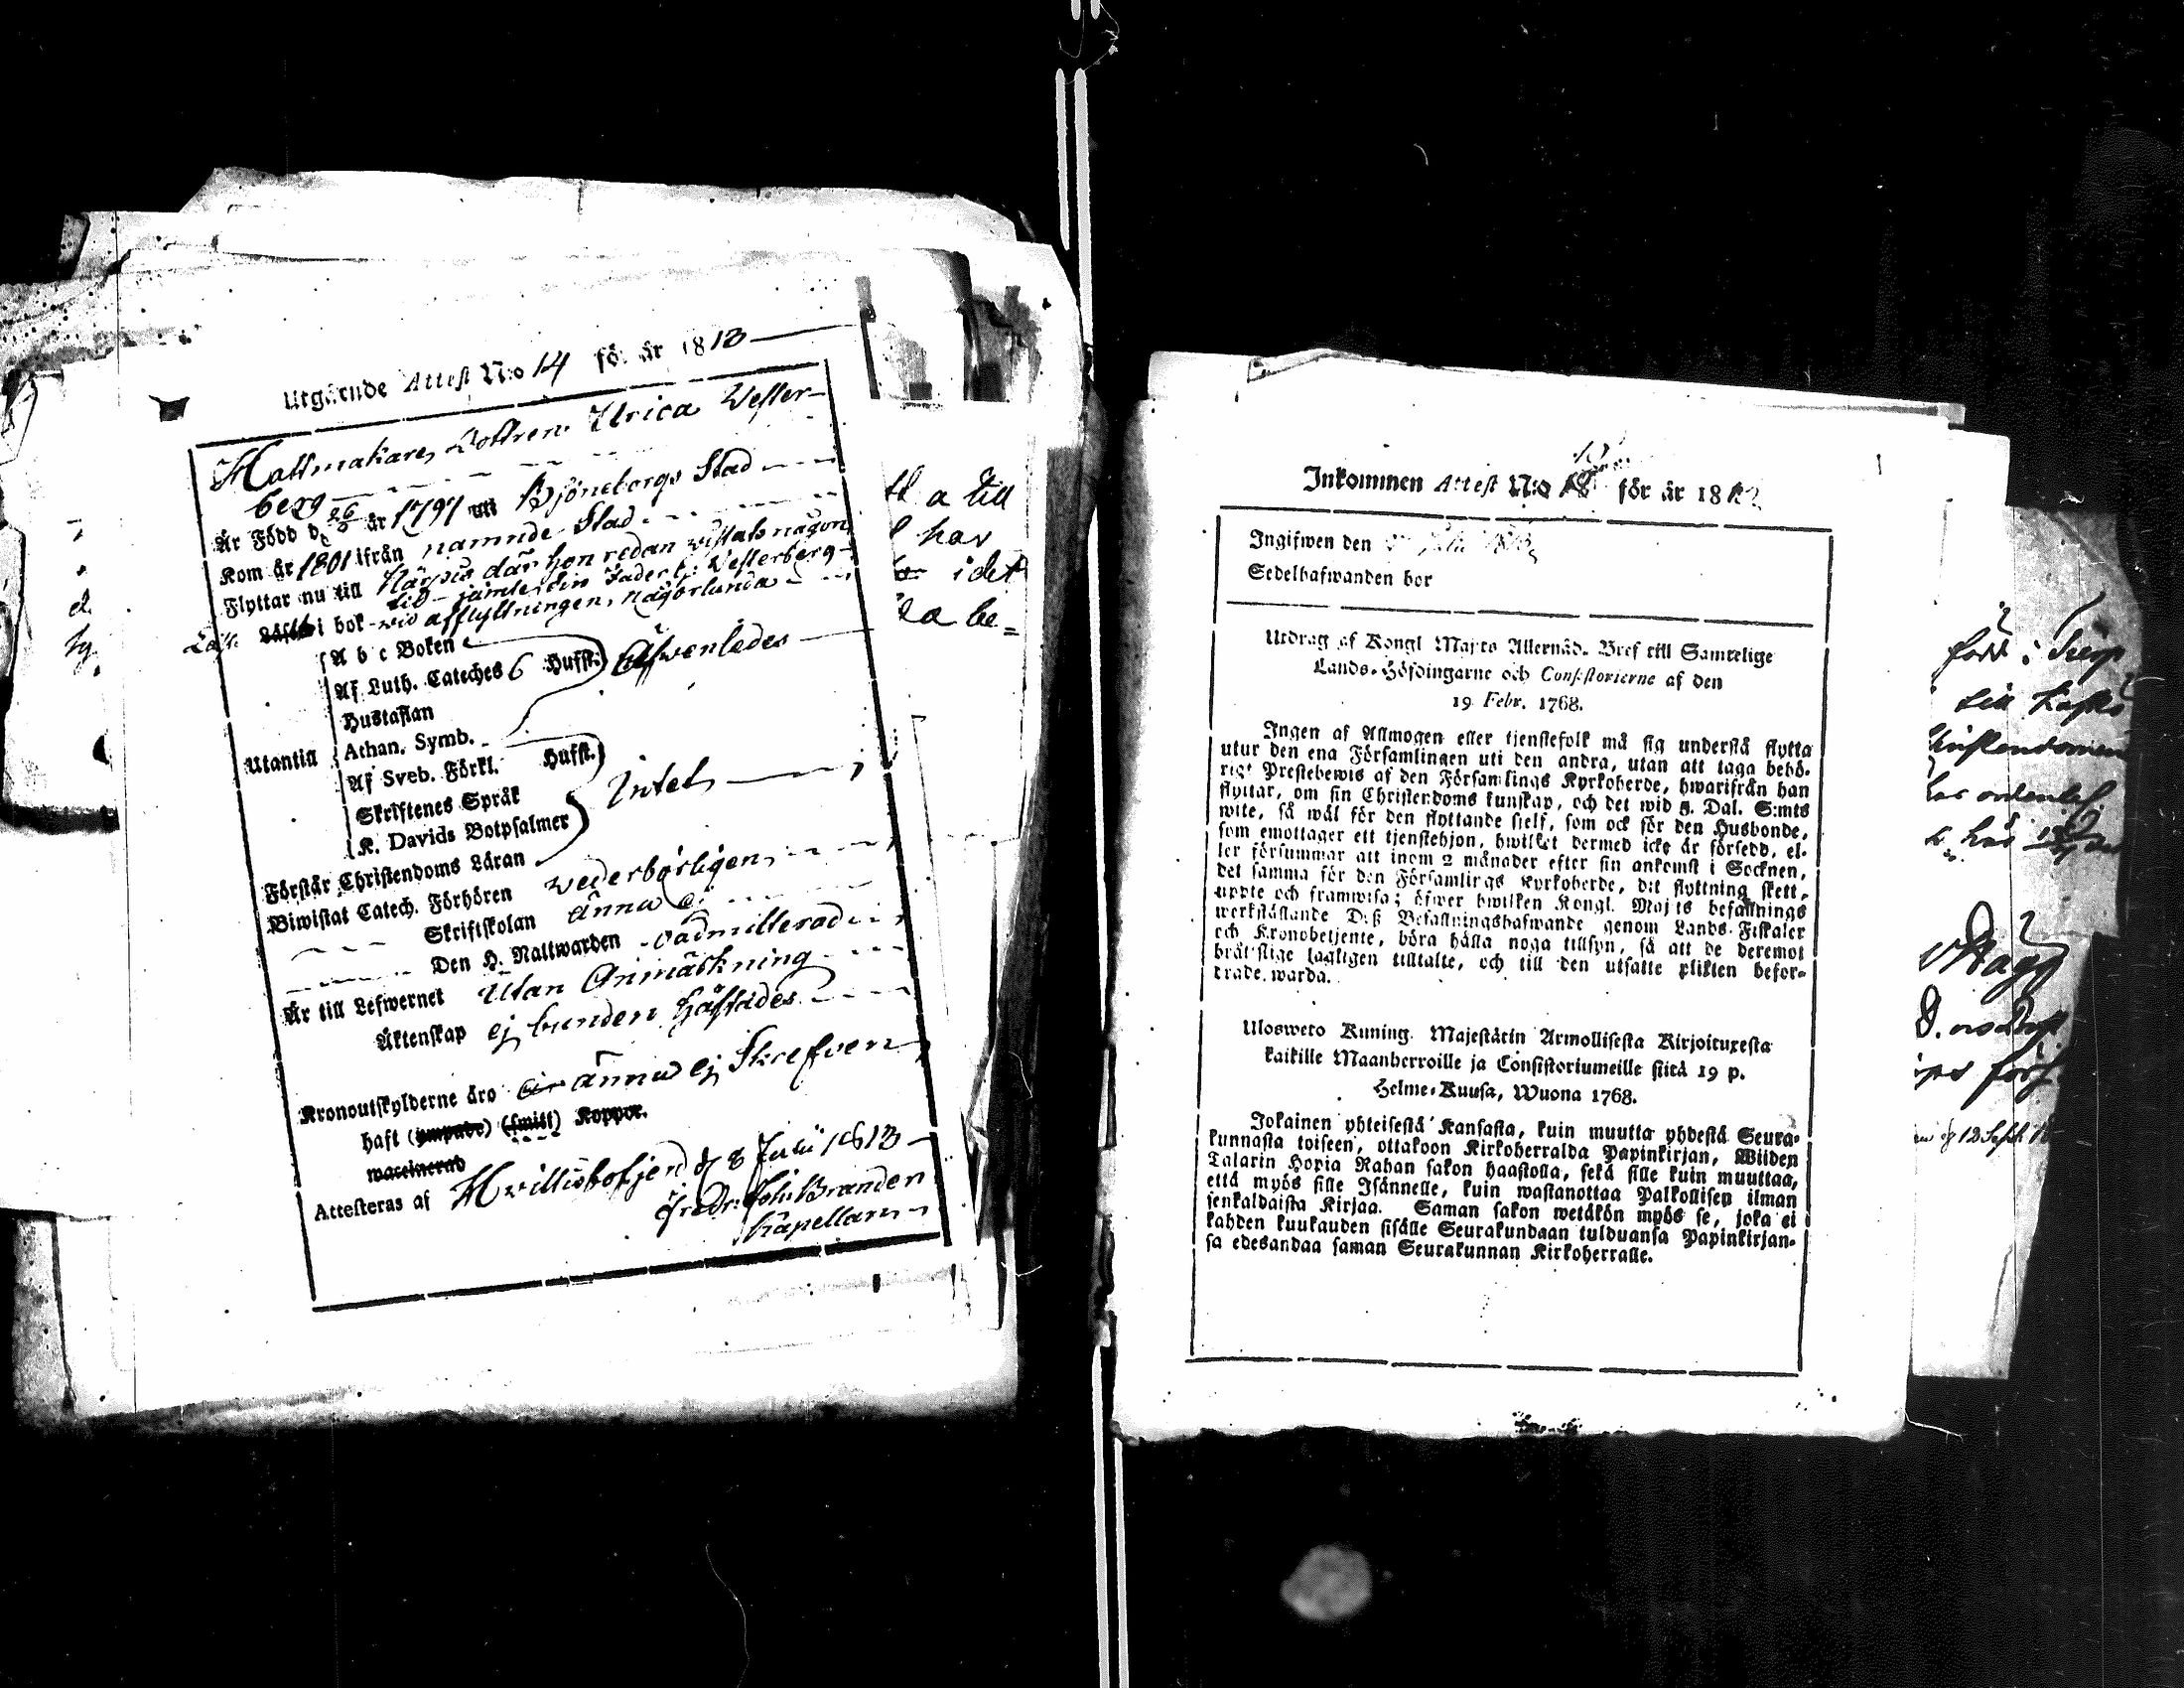 Utgående Attest N:o 14 för år 1813
Hattmakare Dottren Ulrica Wester-
berg
Är Född d. 26 år 1797 uti Björneborgs Stad
Kom år 1801 ifrån namnde Stad
Flyttar nu till där hon redan wistats någon
tid jämte sin Fader Westerberg
Läste i bok wid afflyttningen, någorlunda
Utantill
A b c Boken
Af Luth. Cateches 6 Hufst. Äfwenledes
Hustaflan
Athan. Symb.
Af Sveb. Förkl. Hufst.
Skriftenes Språk Intet
K. Davids Botpsalmer
Förstår Christendoms Läran
Biwistat Catech. Förhören wederbörligen
Skriftskolan ännu ej
Den H. Nattwarden oadmitterad
Är till Lefwernet Utan Anmärkning
Äktenskap ej bunden häftades
Kronoutskylderne äro ännu ej Skrefven
haft (ympade) (smitt) Koppor.
waccinerad
Attesteras af Hvittisbofjerd d. 8 Julii 1813
Fredr. Joh. Branden
Capellan
tt a till
har
i det
la be=
Inkommen Attest N:o 18 för år 18
Ingifwen den
Sedelhafwanden bor
Utdrag af Kongl Maj:ts Allernåd. Bref till Samtelige
Lands-Höfdingarne och Consistorierne af den
19 Febr. 1768.
Ingen af Allmogen eller tjenstefolk må sig understå flytta
utur den ena Församlingen uti den andra, utan att taga behö-
rigt Prestebewis af den Församlings Kyrkoherde, hwarifrån han
flyttar, om sin Christendoms kunskap, och det wid 5. Dal. S:mts
wite, så wäl för den flyttande sjelf, som ock för den Husbonde,
som emottager ett tjenstehjon, hwilket dermed icke är försedd, el-
ler försummar att inom 2 månader efter sin ankomst i Socknen,
det samma för den Församlings Kyrkoherde, dit flyttning skett,
uppte och framwisa; öfwer hwilken Kongl. Maj:ts befallnings
werkställande Deß Befallningshafwande genom Lands-Fiskaler
och Kronobetjente, böra hålla noga tillsyn, så att de deremot
brått slige lagligen tilltalte, och till den utsatte plikten befor-
drade warda.
Ulosweto Kuning. Majestätin Armollisesta Kirjoituxesta
kaikille Maanherroille ja Consistoriumeille siitä 19 p.
Helme-Kuusa, Wuona 1768.
Jokainen yhteisestä Kansasta, kuin muutta yhdestä Seura-
kunnasta toiseen, ottakoon Kirkoherralda Papinkirjan, Wiiden
Talarin Hopia Rahan sakon haastolla, sekä sille kuin muuttaa,
että myös sille Isännelle, kuin wastanottaa Palkollisen ilman
senkaldaista Kirjaa. Saman sakon wetäkön myös se, joka ei
kahden kuukauden sisälle Seurakundaan tulduansa Papinkirjan-
sa edesandaa saman Seurakunnan Kirkoherralle.
född i
till